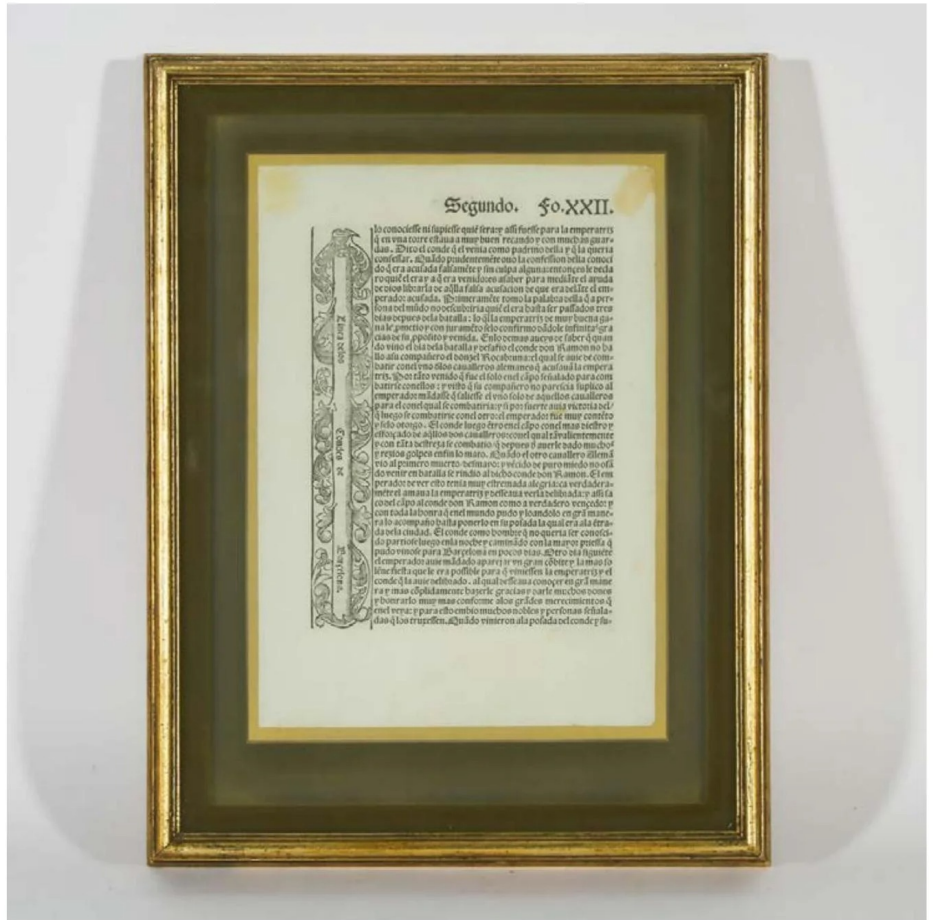 Segundo. Fo.XXII.
lo conociesse ni supiesse quiẽ fera:y assi fuesse para la emperatris
q̃ en vna torre estaua a muy buen recando y con muchas guar-
das. Dixo el conde q̃ el venia como padrino della y q̃ la queria
confessar. Quãdo prudentemẽte ouo la confession della conoci
do q̃ era acusada falsamẽte y sin culpa alguna:entonces le decla
ro quiẽ el era y a q̃ era venido:es asaber para mediãte el ayuda
de dios librarla de aq̃lla falsa acusacion de que era delãte el em-
perador acusada. Primeramẽte tomo la palabra della q̃ a per-
sona del mũdo no descubriria quiẽ el era hasta ser passados tres
dias depues dela batalla: lo q̃l la emperatriz de muy buena ga-
na le ꝓmetio y con juramẽto selo confirmo dãdole infinitas gra
cias de su ꝓposito y venida. Enlo demas aueys de saber q̃ quan
do vino el dia dela batalla y desafio el conde don Ramon no ha
llo asu compañero el donzel Rocabruna:el qual se auie de com-
batir conel vno dlos caualleros alemanes q̃ acusauã la empera
triz. Por tãto venido q̃ fue el solo en el cãpo señalado para com
batirse conellos : y visto q̃ su compañero no parescia suplico al
emperador mãdasse q̃ saliesse el vno solo de aquellos caualleros
para el conel qual se combatiria:y si por suerte auia victoria del
q̃ luego se combatirie conel otro:el emperador fue muy contẽto
y selo otorgo. El conde luego ẽtro enel cãpo conel mas diestro y
efforçado de aq̃llos dos caualleros:conel qual tã valientemente
y con tãta destreza se combatio q̃ depues d̃ auerle dado muchos
y rezios golpes enfin lo mato. Quãdo el otro cauallero Alemã
vio al primero muerto desmayo: y vẽcido de puro miedo no osã
do venir en batalla se rindio al dicho conde don Ramon. El em
perador de ver esto tenia muy estremada alegria:ca verdadera-
mẽte el amaua la emperatriz y desseaua verla delibrada: y assi sa
co del cãpo al conde don Ramon como a verdadero vencedor y
con toda la honra q̃ enel mundo pudo y loandolo en grã mane-
ra lo acompaño hasta ponerlo en su posada la qual era ala ẽtra-
da dela ciudad. El conde como hombre q̃ no queria ser conosci-
do partiose luego enla noche y caminãdo con la mayor priessa q̃
pudo vinose para Barcelona en pocos dias. Otro dia siguiẽte
el emperador auie mãdado aparejar vn gran cõbite y la mas so
lẽne fiesta que le era possible para q̃ viniessen la emperatriz y el
conde q̃ la auie delibrado. al qual desseaua conoçer en grã mane
ra y mas cõplidamente hazerle gracias y darle muchos dones
y honrarlo muy mas conforme alos grãdes merecimientos q̃
enel veya: y para esto embio muchos nobles y personas señala-
das q̃ los truxessen. Quãdo vinieron ala posada del conde y su-
Linea delos
Condes de
Barcelona.